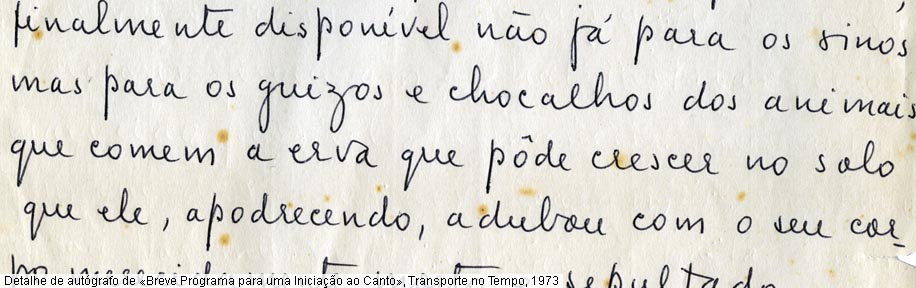 finalmente disponível não já para os sinos
mas para os guizos e chocalhos dos animais
que comem a erva que pôde crescer no solo
que ele, apodrecendo, adubou com o seu cor-
po sepultado
Detalhe de autógrafo de «Breve Programa para uma Iniciação ao Canto», Transporte no Tempo, 1973